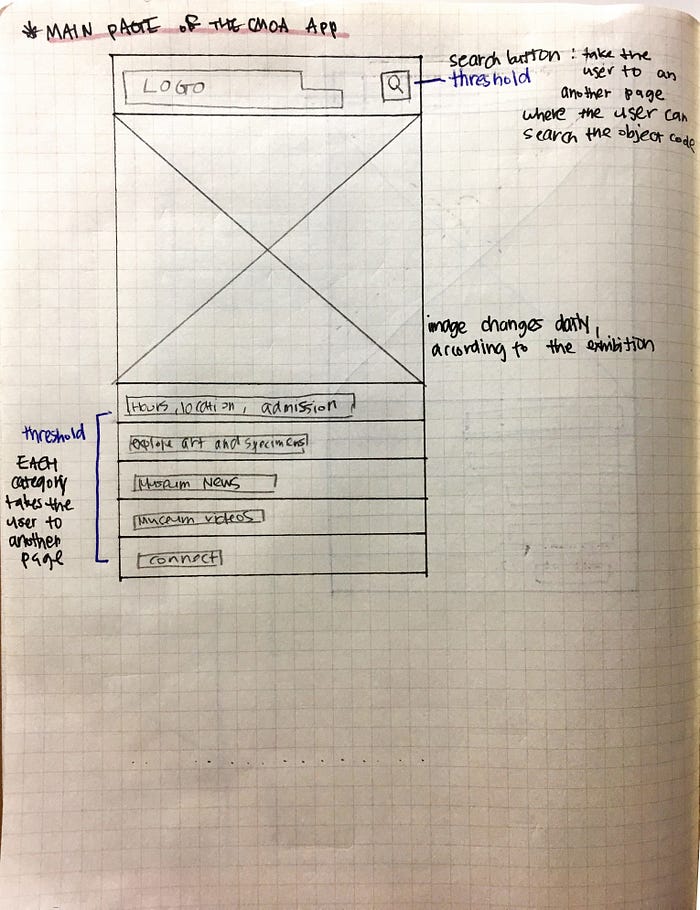 * MAIN PAGE OF THE CMOA App
LOGO
search button : take the
threshold
user to an
another page
where the user can
search the object code
image changes daily,
according to the exhibition
Hours, location, admission
explore art and specimens
Museum News
Museum videos
connect
threshold
EACH
category
takes the
user to
another
page